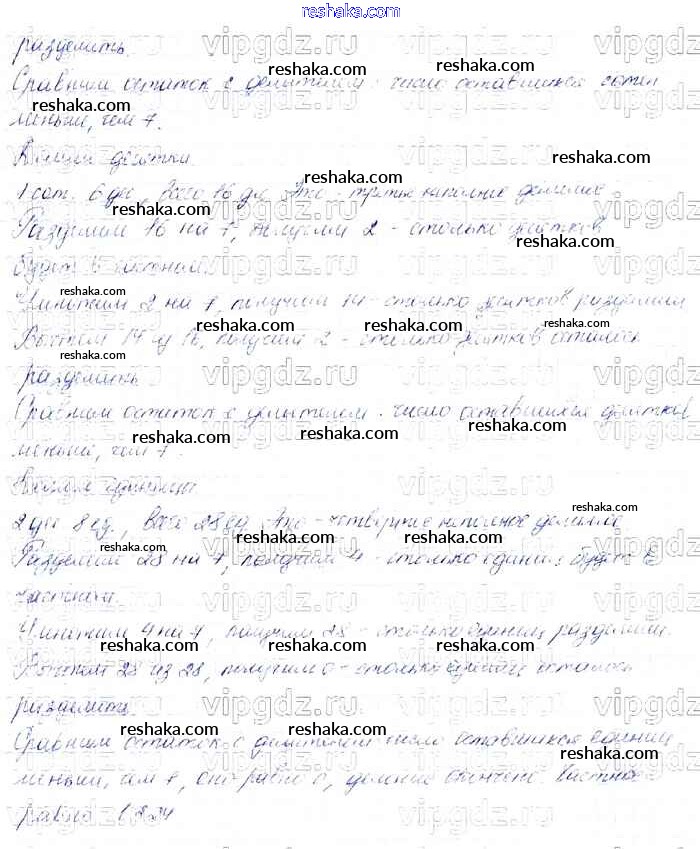 reshaka.com
разделить.
Сравним остаток с делителем: число оставшихся сотен
меньше, чем 7.
Возьмем десятки
1 сот. 6 дес., всего 16 дес. Это - третье неполное делимое
Разделим 16 на 7, получим 2 - столько десятков
будет в частном.
Умножим 2 на 7, получим 14 - столько десятков разделили
Вычтем 14 из 16, получим 2 - столько десятков осталось
разделить
Сравним остаток с делителем: число оставшихся десятков
меньше, чем 7.
Возьмем единицы
2 дес 8 ед., всего 28 ед. Это - четвертое неполное делимое
Разделим 28 на 7, получим 4 - столько единиц будет в
частном.
Умножим 4 на 7, получим 28 - столько единиц разделили.
Вычтем 28 из 28, получим 0 - столько единиц осталось
разделить.
Сравним остаток с делителем: число оставшихся единиц
меньше, чем 7, оно равно 0, деление окончено. Частное
равно